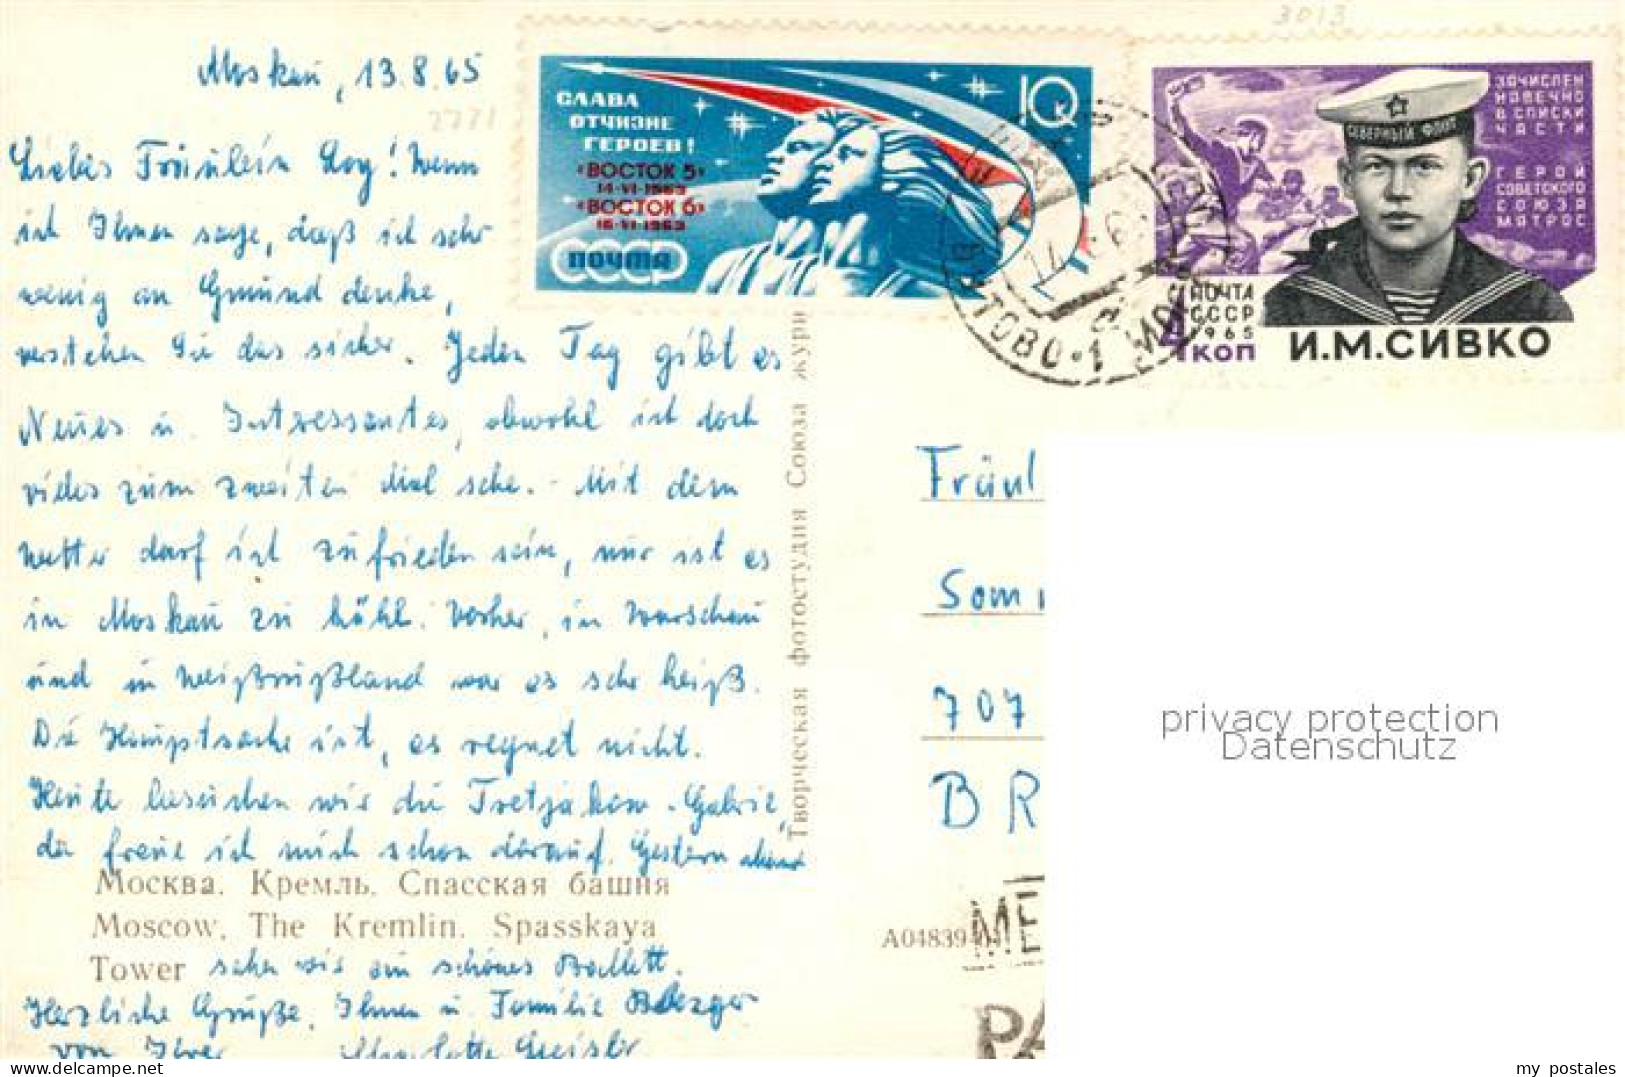 3013
Moskau, 13.8.65
2771
Liebes Fräulein Log! Wenn
ich Ihnen sage, daß ich sehr
wenig an Gmünd denke,
verstehen Sie das sicher. Jeden Tag gibt es
Neues u. Interessantes, obwohl ich doch
vieles zum zweiten Mal sehe. - Mit dem
Wetter darf ich zufrieden sein, nur ist es
in Moskau zu kühl. Vorher, in Warschau
und in Weißrußland war es sehr heiß.
Die Hauptsache ist, es regnet nicht.
Heute besuchen wir die Tretjakow-Galerie,
da freue ich mich schon darauf. Gestern abend
Москва. Кремль. Спасская башня
Moscow. The Kremlin. Spasskaya
Tower sahen wir ein schönes Ballett.
Herzliche Grüße, Ihnen u. Familie
von Ihrer Charlotte Geisler
Творческая фотостудия Союза журн
СЛАВА
ОТЧИЗНЕ
ГЕРОЕВ!
«ВОСТОК 5»
14-VI-1963
«ВОСТОК 6»
16-VI-1963
ПОЧТА
СССР
10
ЗАЧИСЛЕН
НАВЕЧНО
В СПИСКИ
ЧАСТИ
ГЕРОЙ
СОВЕТСКОГО
СОЮЗА
МАТРОС
СЕВЕРНЫЙ ФЛОТ
ПОЧТА
СССР
1965
4 КОП
И.М.СИВКО
Fräul
Som
707
BR
A04839
МЕ
PA
privacy protection
Datenschutz
www.delcampe.net
my_postales